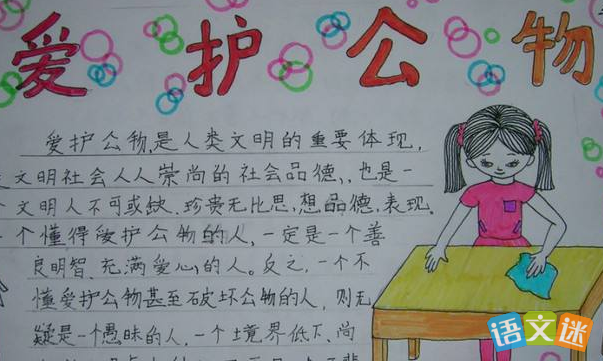 爱护公物
爱护公物,是人类文明的重要体现,
文明社会人人崇尚的社会品德,,也是一
个文明人不可或缺、珍贵无比思,想品德,表现。
一个懂,得爱护公物的人,一定是一个善
良明智、充满爱心,的人。反之,一个不
懂爱护公物甚至破坏公物的人,则无
疑是一个愚昧的人,一个境界低下、尚
语文迷